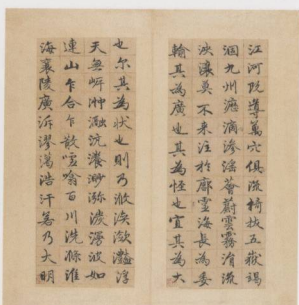 江河既導萬穴俱流掎拔五嶽竭
涸九州瀝滴滲淫薈蔚雲霧涓流
泱瀼莫不來注於廓靈海長為委
輸其為廣也其為怪也宜其為大
也尔其為狀也則乃浟湙瀲灩浮
天無岸沖瀜沆瀁渺瀰湠漫波如
連山乍合乍散噓噏百川洗滌淮
海襄陵廣浩汗若乃大明